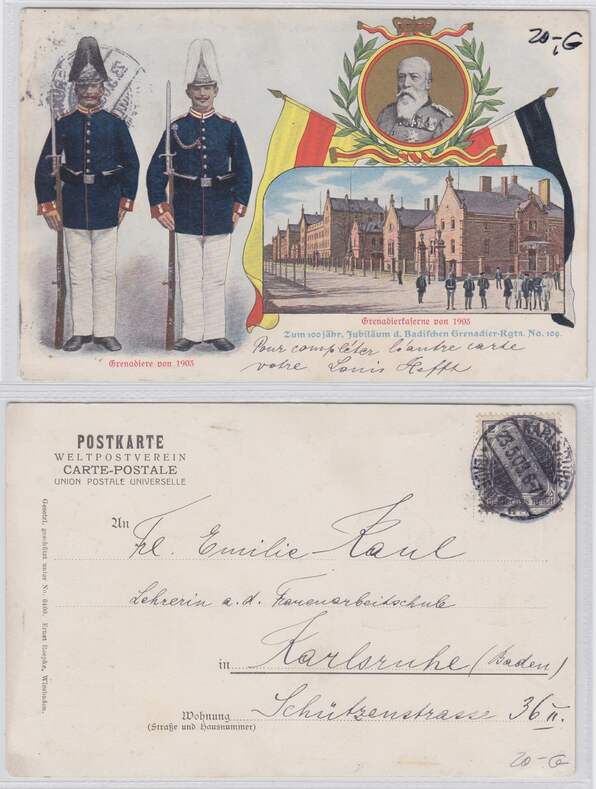 20-, G
Grenadierkaserne von 1903
Zum 100jähr. Jubiläum d. Badischen Grenadier-Rgts. No. 109
Grenadiere von 1903
Pour compléter l'autre carte
votre Louis Hefft
POSTKARTE
WELTPOSTVEREIN
CARTE-POSTALE
UNION POSTALE UNIVERSELLE
KARLSRUHE
23.5.03.6-7
An
Frl. Emilie Kaul
Lehrerin a.d. Frauenarbeitschule
in Karlsruhe (Baden)
Wohnung Schützenstrasse 36 II.
(Straße und Hausnummer)
Gesetzl. geschützt unter No. 6400. Ernst Roepke, Wiesbaden.
20-G